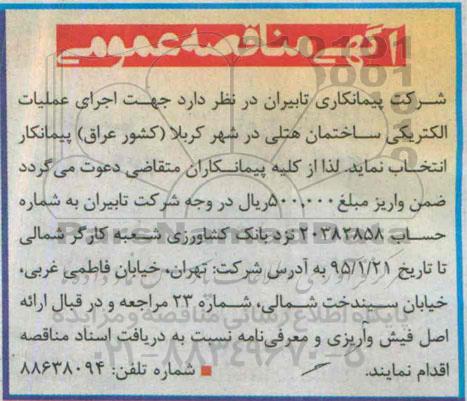 آگهی مناقصه عمومی
شرکت پیمانکاری تابیران در نظر دارد جهت اجرای عملیات
الکتریکی ساختمان هتلی در شهر کربلا (کشور عراق) پیمانکار
انتخاب نماید. لذا از کلیه پیمانکاران متقاضی دعوت می‌گردد
ضمن واریز مبلغ ۵۰۰,۰۰۰ریال در وجه شرکت تابیران به شماره
حساب ۲۰۳۸۲۸۵۸ نزد بانک کشاورزی شعبه کارگر شمالی
تا تاریخ ۹۵/۱/۲۱ به آدرس شرکت: تهران، خیابان فاطمی غربی،
خیابان سیندخت شمالی، شماره ۲۳ مراجعه و در قبال ارائه
اصل فیش واریزی و معرفی‌نامه نسبت به دریافت اسناد مناقصه
اقدام نمایند. شماره تلفن: ۸۸۶۳۸۰۹۴
پایگاه اطلاع رسانی مناقصه و مزایده
۰۲۱-۸۸۳۴۹۶۷۰-۵